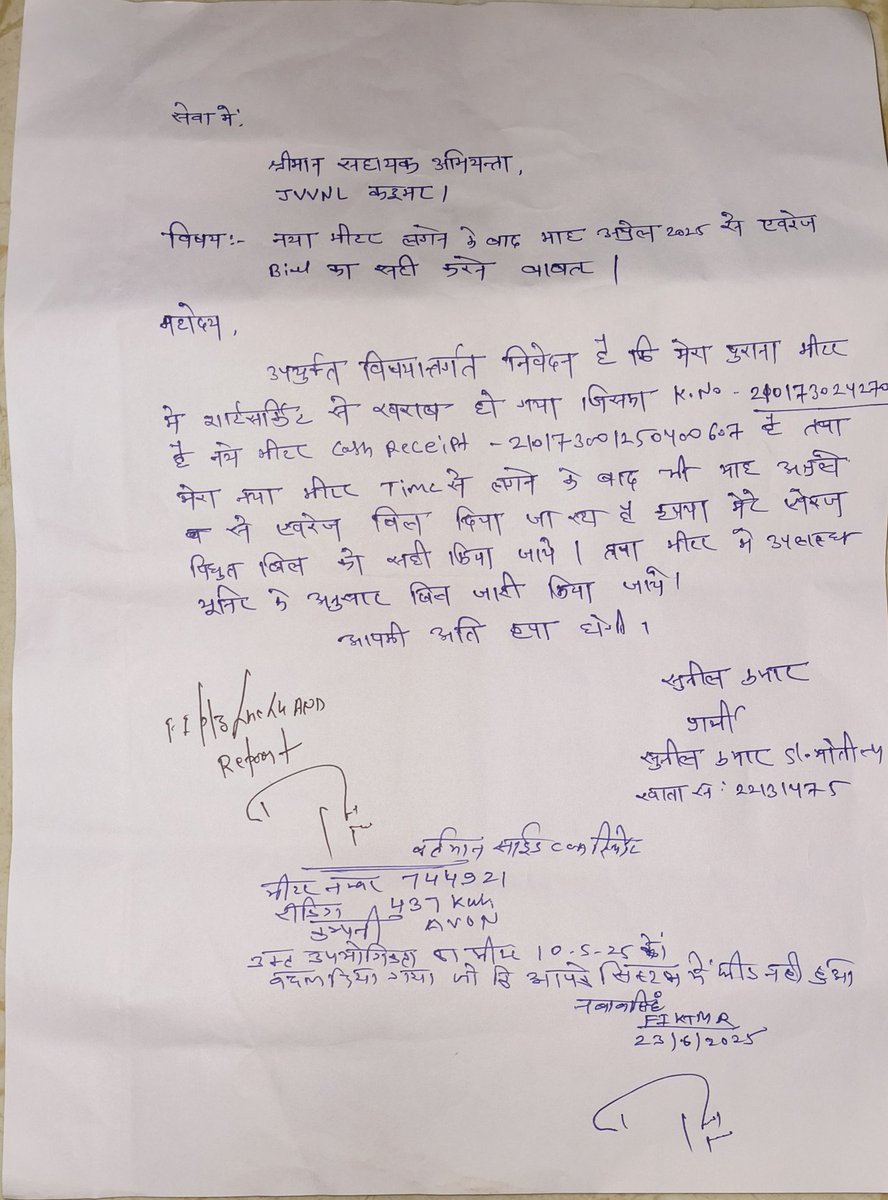 सेवा में,
श्रीमान सहायक अभियन्ता,
JVVNL कठूमर।
विषय:- नया मीटर लगने के बाद माह अप्रेल 2025 से एवरेज
Bill का सही करने बाबत |
महोदय,
उपर्युक्त विषयान्तर्गत निवेदन है कि मेरा पुराना मीटर
मे शार्टसर्किट से खराब हो गया जिसका K.No - 210173024270
है नये मीटर Cash Receipt - 210173001250400607 है तथा
मेरा नया मीटर Time से लगने के बाद भी माह अप्रेल
से एवरेज बिल दिया जा रहा है कृपया मेरे एवरेज
विधुत बिल को सही किया जाये | तथा मीटर मे उपलब्ध
यूनिट के अनुसार बिल जारी किया जाये।
आपकी अति कृपा होगी।
सुनील कुमार
शर्मा
सुनील कुमार S/.मोती
खाता सं: 22131475
AND
Report
वर्तमान साईड का रिपोर्ट
मीटर नम्बर 744921
रीडिंग 437 Kwh
कम्पनी AVON
उक्त उपभोगिता का मीटर 10-5-25 को
बदल दिया गया जो कि आपके सिस्टम में फीड नही हुआ
FI KTMR
23/6/2025